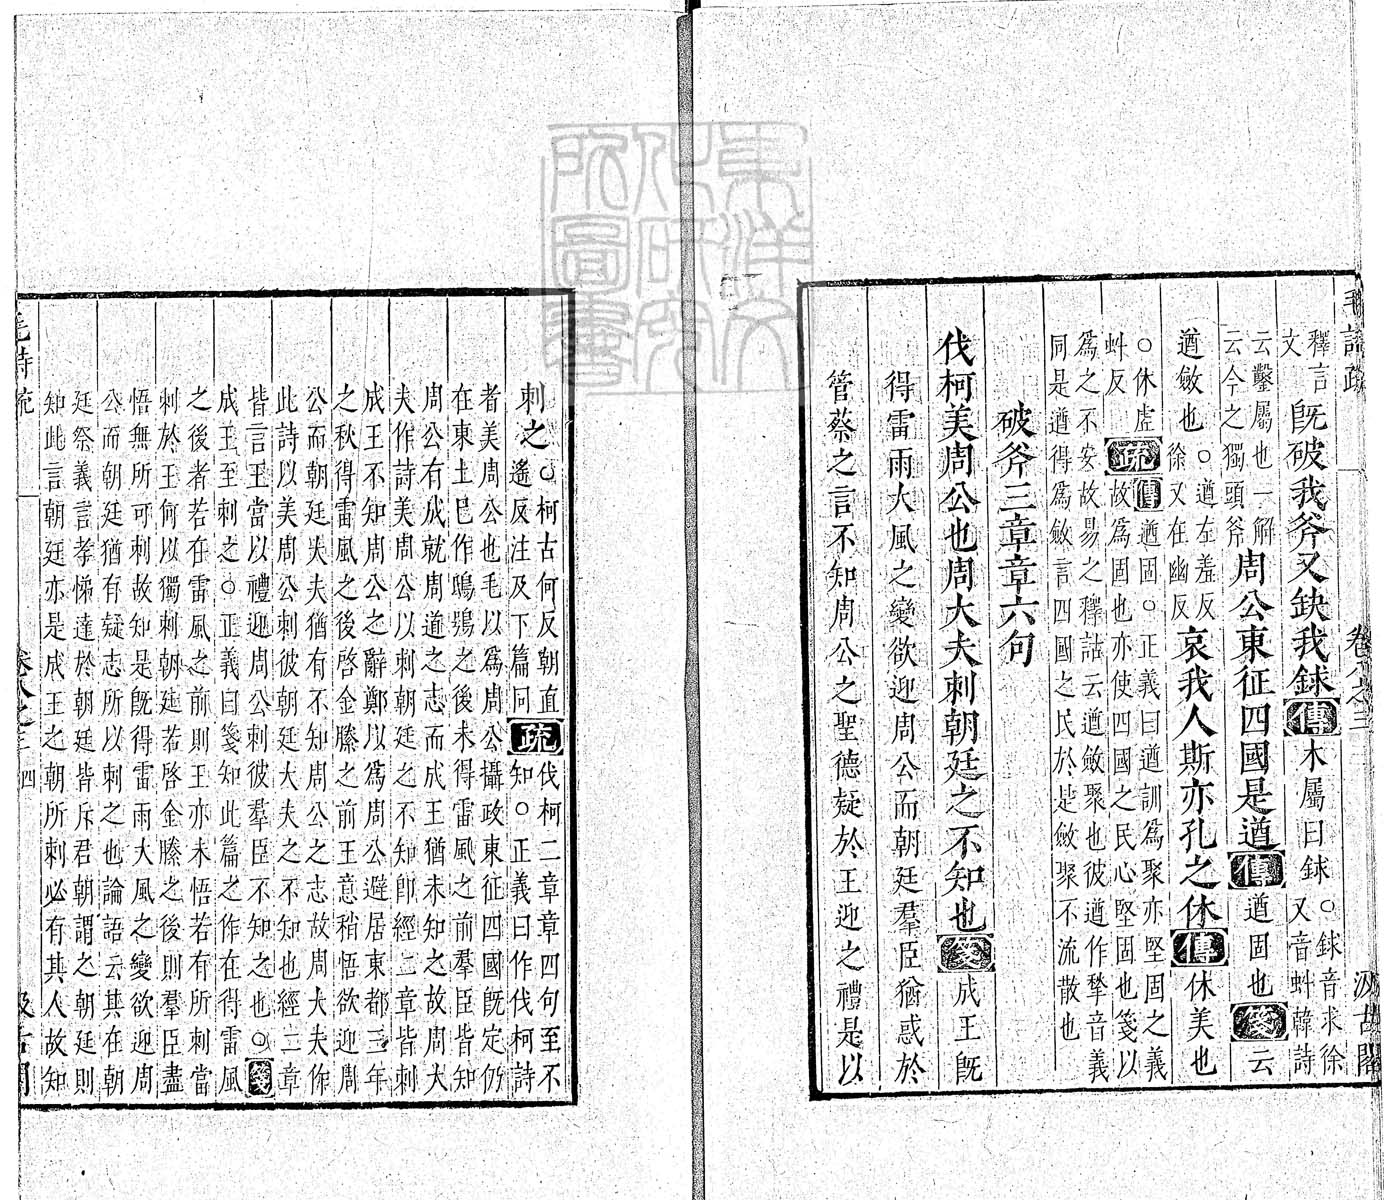 毛詩疏 卷八之三 汲古閣
釋言
文
既破我斧又缺我銶傳木屬曰銶
○銶音求徐
又音蚪韓詩
云鑿屬也一解
云今之獨頭斧
周公東征四國是遒傳遒固也箋云
遒斂也
○遒在羞反
徐又在幽反
哀我人斯亦孔之休傳休美也
○休虛
蚪反
疏
傳遒固○正義曰遒訓爲聚亦堅固之義
故爲固也亦使四國之民心堅固也箋以
爲之不安故易之釋詁云遒斂聚也彼遒作揫音義
同是遒得爲斂言四國之民於是斂聚不流散也
破斧三章章六句
伐柯美周公也周大夫刺朝廷之不知也箋成王既
得雷雨大風之變欲迎周公而朝廷羣臣猶惑於
管蔡之言不知周公之聖德疑於王迎之禮是以
刺之
○柯古何反朝直
遙反注及下篇同
疏
伐柯二章章四句至不
知○正義曰作伐柯詩
者美周公也毛以爲周公攝政東征四國既定仍
在東土已作鴟鴞之後未得雷風之前羣臣皆知
周公有成就周道之志而成王猶未知之故周大
夫作詩美周公以刺朝廷之不知卽經二章皆刺
成王不知周公之辭鄭以爲周公避居東都三年
之秋得雷風之後啓金縢之前王意稍悟欲迎周
公而朝廷大夫猶有不知周公之志故周大夫作
此詩以美周公刺彼朝廷大夫之不知也經二章
皆言王當以禮迎周公刺彼羣臣不知之也○箋
成王至刺之○正義曰箋知此篇之作在得雷風
之後者若在雷風之前則王亦未悟若有所刺當
刺於王何以獨刺朝廷若啓金縢之後則羣臣盡
悟無所可刺故知是既得雷雨大風之變欲迎周
公而朝廷猶有疑志所以刺之也論語云其在朝
廷祭義言孝悌達於朝廷皆斥君朝謂之朝廷則
知此言朝廷亦是成王之朝所刺必有其人故知
毛詩疏 卷八之三 四 汲古閣
東洋文化研究所圖書